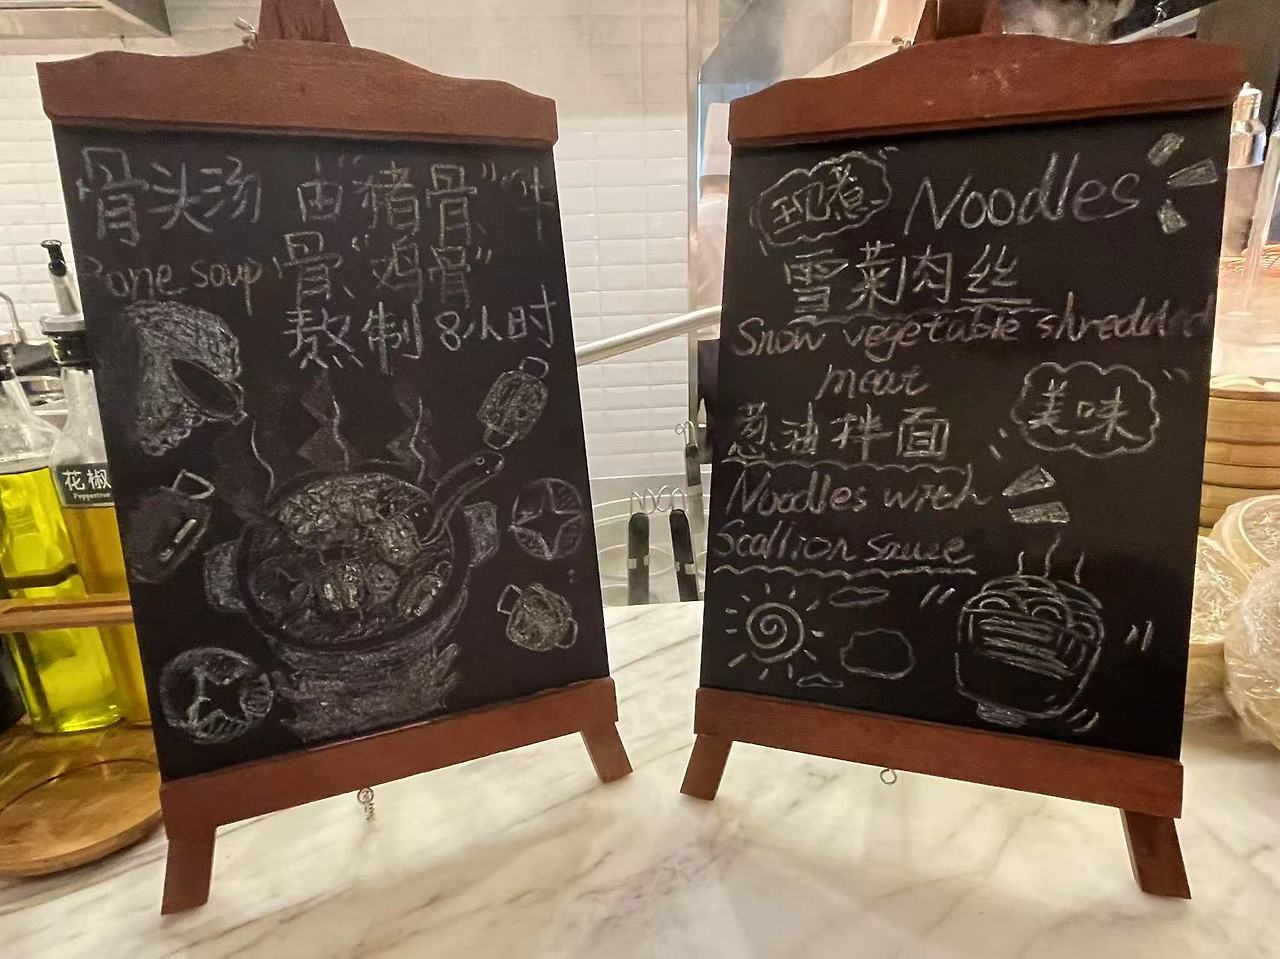 骨头汤 由"猪骨""牛
Bone soup 骨"鸡骨"
熬制8小时
花椒
现煮 Noodles
雪菜肉丝
Snow vegetable shredded
meat
美味
葱油拌面
Noodles with
Scallion Sauce